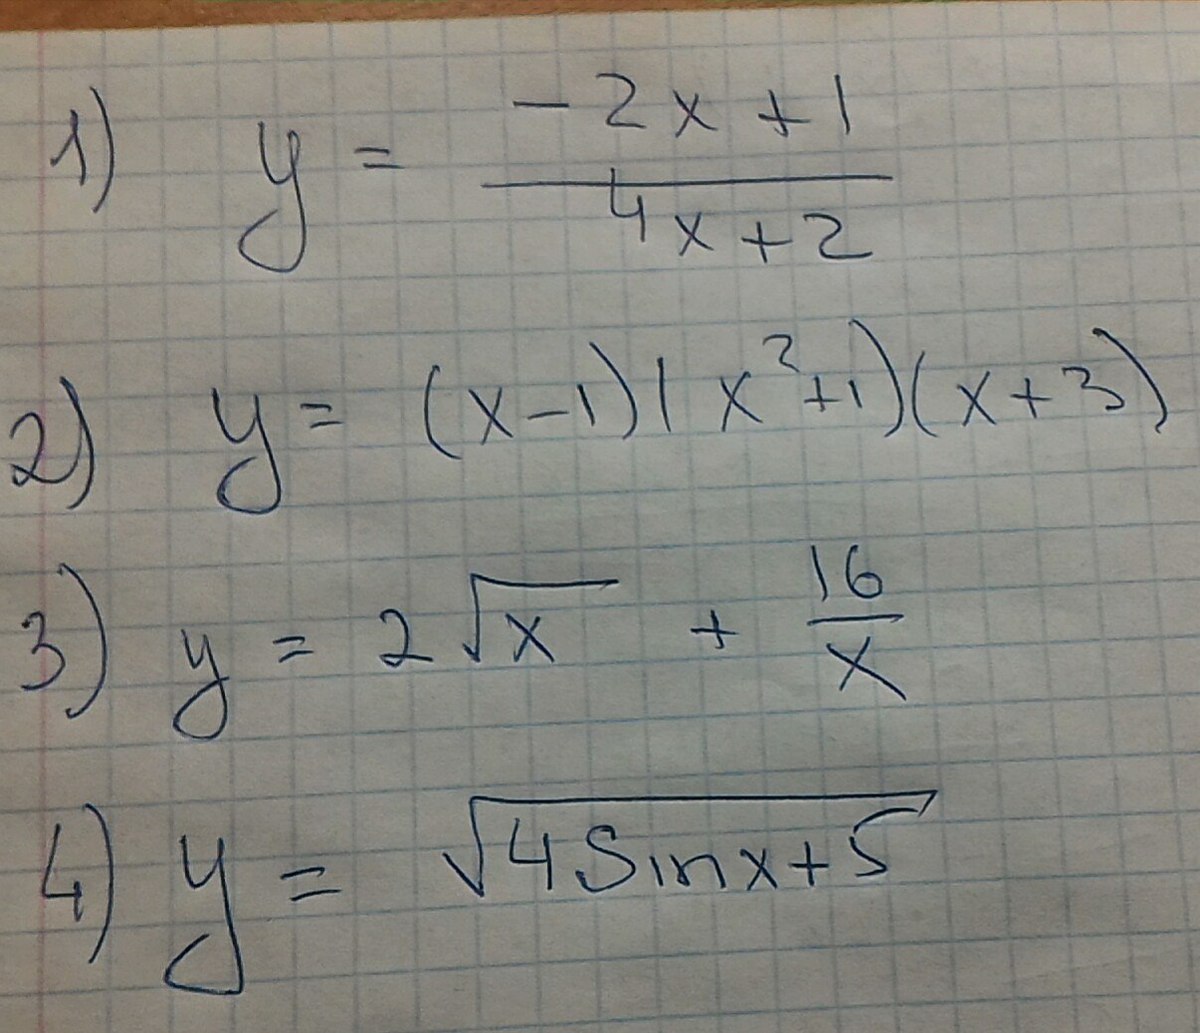 1) y = (-2x + 1)/(4x + 2)
2) y = (x-1)(x²+1)(x+3)
3) y = 2√x + 16/x
4) y = √(4Sinx+5)